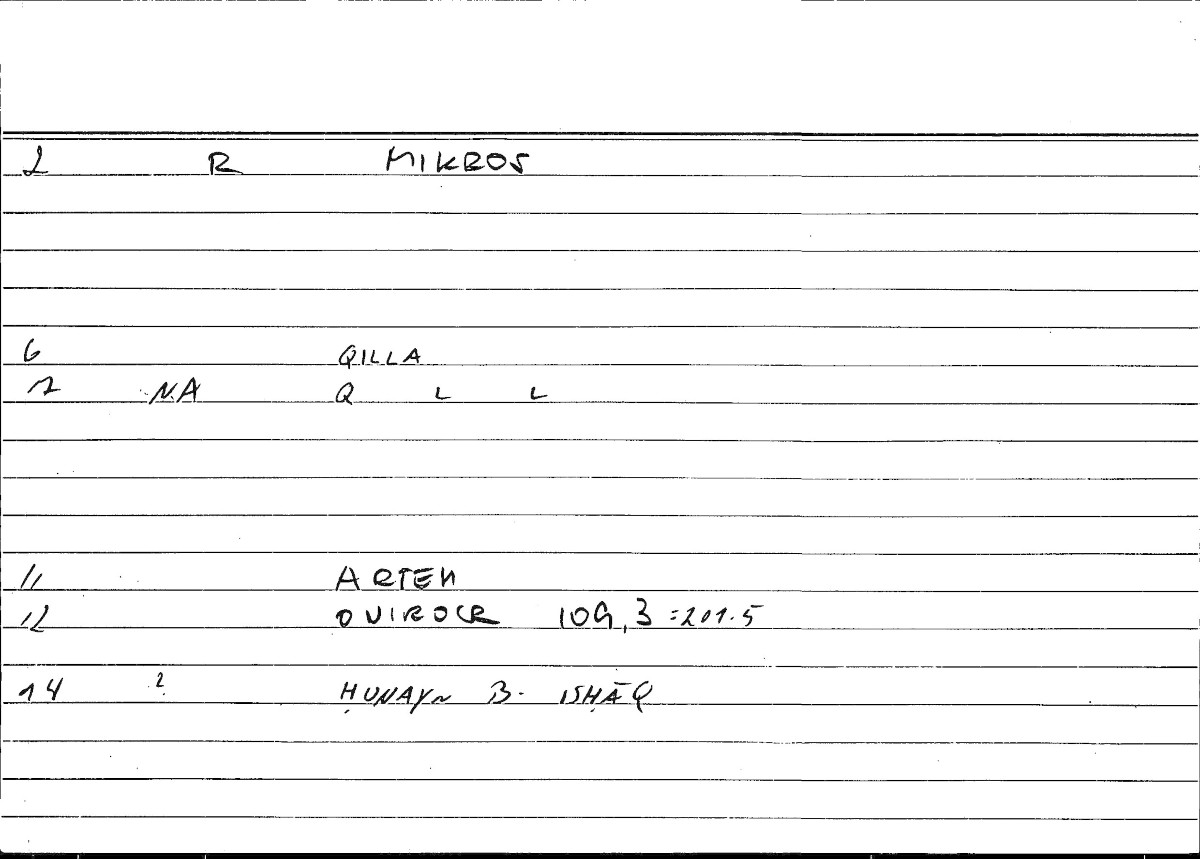 2 R MIKROS
6 QILLA
7 NA Q L L
11 ARTEM
12 OVIROCR 109,3 =201.5
14 2 ḤUNAYN B. ISḤĀQ